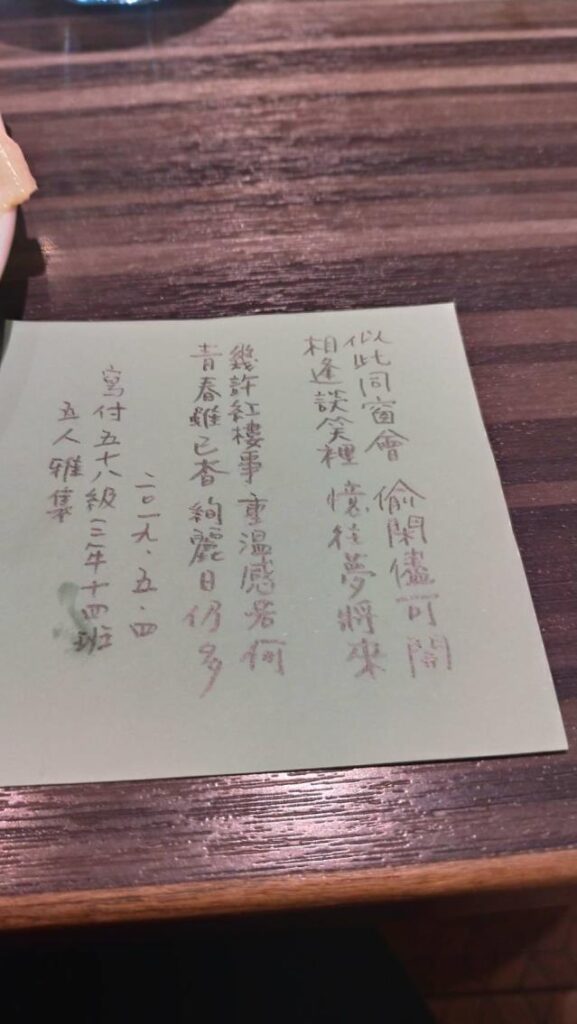 似此同窗會 偷閑儘可開
相逢談笑裡 憶往夢將來
幾許紅樓事 重溫感若何
青春雖已杳 絢麗日仍多
二〇一九.五.四
寫付五十八級三年十四班
五人雅集